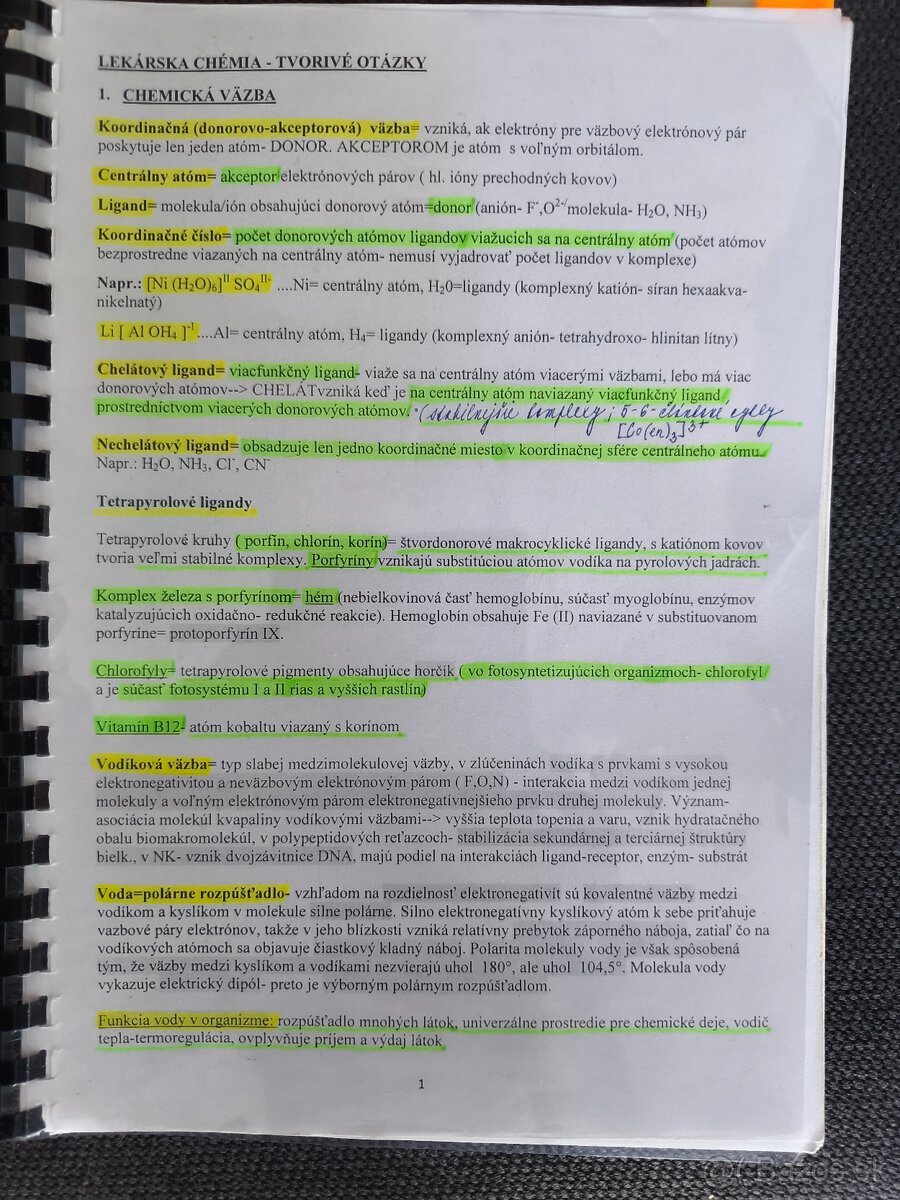 LEKÁRSKA CHÉMIA - TVORIVÉ OTÁZKY
1. CHEMICKÁ VÄZBA
Koordinačná (donorovo-akceptorová) väzba= vzniká, ak elektróny pre väzbový elektrónový pár
poskytuje len jeden atóm- DONOR. AKCEPTOROM je atóm s voľným orbitálom.
Centrálny atóm= akceptor elektrónových párov ( hl. ióny prechodných kovov)
Ligand= molekula/ión obsahujúci donorový atóm=donor (anión- F⁻,O²⁻/molekula- H₂O, NH₃)
Koordinačné číslo= počet donorových atómov ligandov viažucich sa na centrálny atóm (počet atómov
bezprostredne viazaných na centrálny atóm- nemusí vyjadrovať počet ligandov v komplexe)
Napr.: [Ni (H₂O)₆]ᴵᴵ SO₄ᴵᴵ⁻ ....Ni= centrálny atóm, H₂0=ligandy (komplexný katión- síran hexaakva-
nikelnatý)
Li [ Al OH₄ ]⁻ᴵ....Al= centrálny atóm, H₄= ligandy (komplexný anión- tetrahydroxo- hlinitan lítny)
Chelátový ligand= viacfunkčný ligand- viaže sa na centrálny atóm viacerými väzbami, lebo má viac
donorových atómov--> CHELÁTvzniká keď je na centrálny atóm naviazaný viacfunkčný ligand
prostredníctvom viacerých donorových atómov. (stabilnejšie komplexy; 5-6-členové cykly
[Co(en)₃]³⁺
Nechelátový ligand= obsadzuje len jedno koordinačné miesto v koordinačnej sfére centrálneho atómu.
Napr.: H₂O, NH₃, Cl⁻, CN⁻
Tetrapyrolové ligandy
Tetrapyrolové kruhy ( porfín, chlorín, korín)= štvordonorové makrocyklické ligandy, s katiónom kovov
tvoria veľmi stabilné komplexy. Porfyríny vznikajú substitúciou atómov vodíka na pyrolových jadrách.
Komplex železa s porfyrínom= hém (nebielkovinová časť hemoglobínu, súčasť myoglobínu, enzýmov
katalyzujúcich oxidačno- redukčné reakcie). Hemoglobín obsahuje Fe (II) naviazané v substituovanom
porfyríne= protoporfyrín IX.
Chlorofyly= tetrapyrolové pigmenty obsahujúce horčík ( vo fotosyntetizujúcich organizmoch- chlorofyl
a je súčasť fotosystému I a II rias a vyšších rastlín)
Vitamín B12- atóm kobaltu viazaný s korínom
Vodíková väzba= typ slabej medzimolekulovej väzby, v zlúčeninách vodíka s prvkami s vysokou
elektronegativitou a neväzbovým elektrónovým párom ( F,O,N) - interakcia medzi vodíkom jednej
molekuly a voľným elektrónovým párom elektronegatívnejšieho prvku druhej molekuly. Význam-
asociácia molekúl kvapaliny vodíkovými väzbami--> vyššia teplota topenia a varu, vznik hydratačného
obalu biomakromolekúl, v polypeptidových reťazcoch- stabilizácia sekundárnej a terciárnej štruktúry
bielk., v NK- vznik dvojzávitnice DNA, majú podiel na interakciách ligand-receptor, enzým- substrát
Voda=polárne rozpúšťadlo- vzhľadom na rozdielnosť elektronegativít sú kovalentné väzby medzi
vodíkom a kyslíkom v molekule silne polárne. Silno elektronegatívny kyslíkový atóm k sebe priťahuje
vazbové páry elektrónov, takže v jeho blízkosti vzniká relatívny prebytok záporného náboja, zatiaľ čo na
vodíkových atómoch sa objavuje čiastkový kladný náboj. Polarita molekuly vody je však spôsobená
tým, že väzby medzi kyslíkom a vodíkami nezvierajú uhol 180°, ale uhol 104,5°. Molekula vody
vykazuje elektrický dipól- preto je výborným polárnym rozpúšťadlom.
Funkcia vody v organizme: rozpúšťadlo mnohých látok, univerzálne prostredie pre chemické deje, vodič
tepla-termoregulácia, ovplyvňuje príjem a výdaj látok
1
Bazos.sk